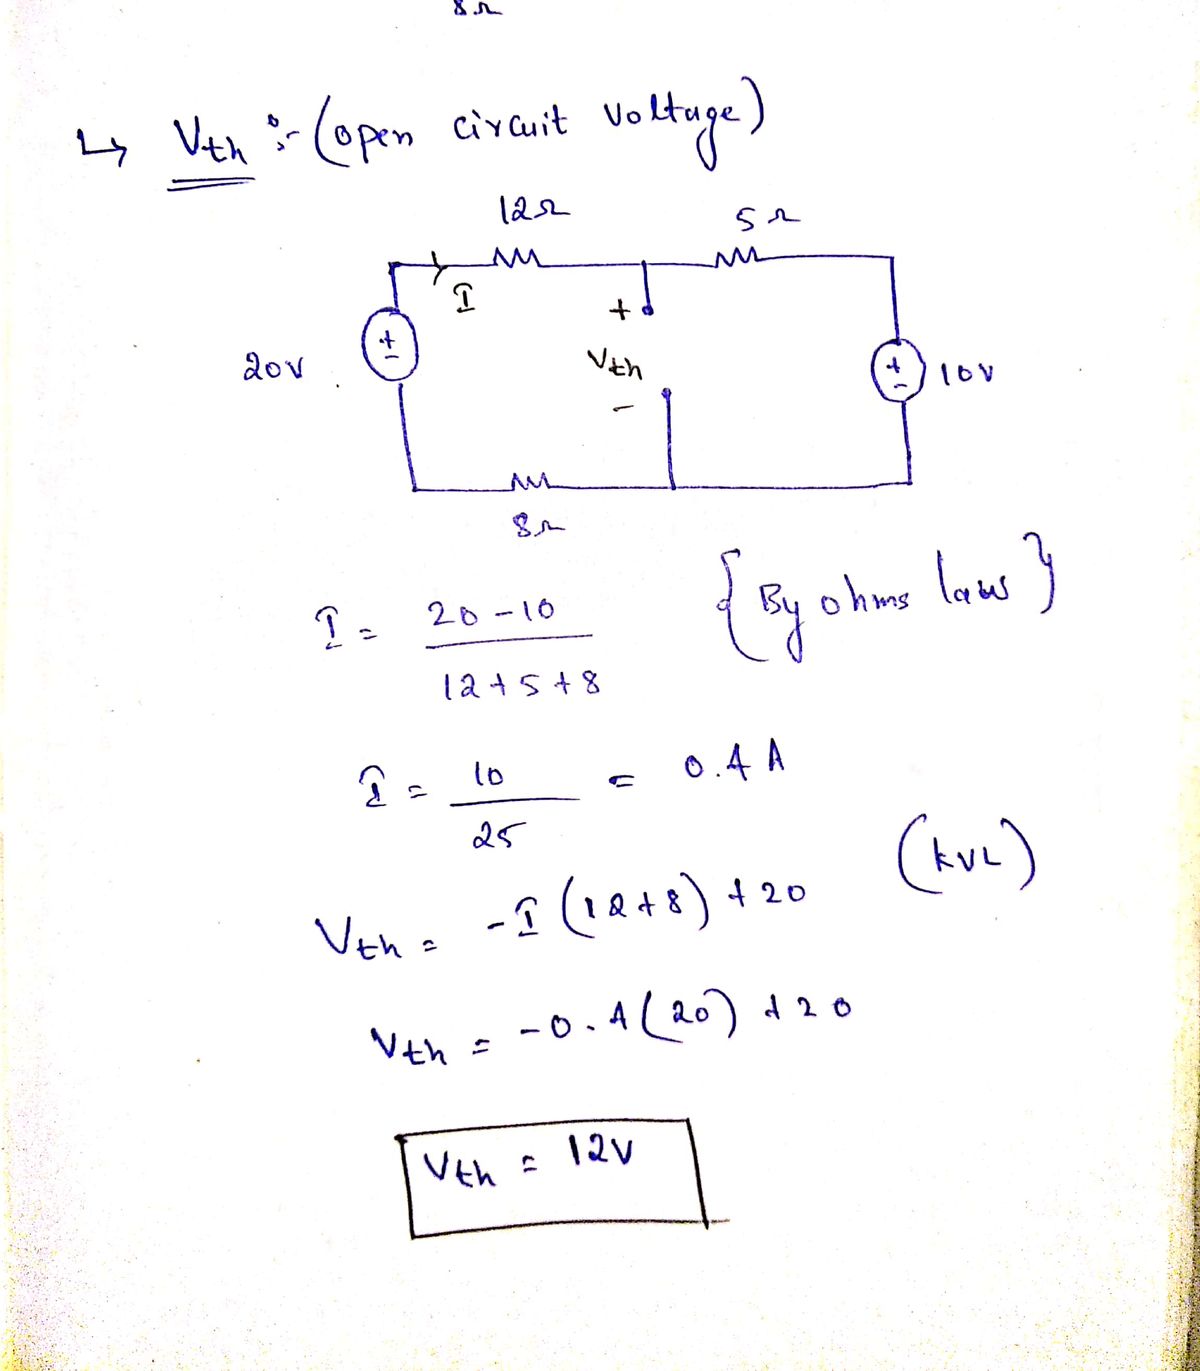 8Ω
↳ Vth :- (open circuit voltage)
12Ω
5Ω
I
+
20V
+
-
Vth
-
+
-
10V
8Ω
I = 20-10 / 12+5+8 {By ohms laws}
I = 10 / 25 = 0.4 A
Vth = -I (12+8) +20 (KVL)
Vth = -0.4 (20) +20
Vth = 12V